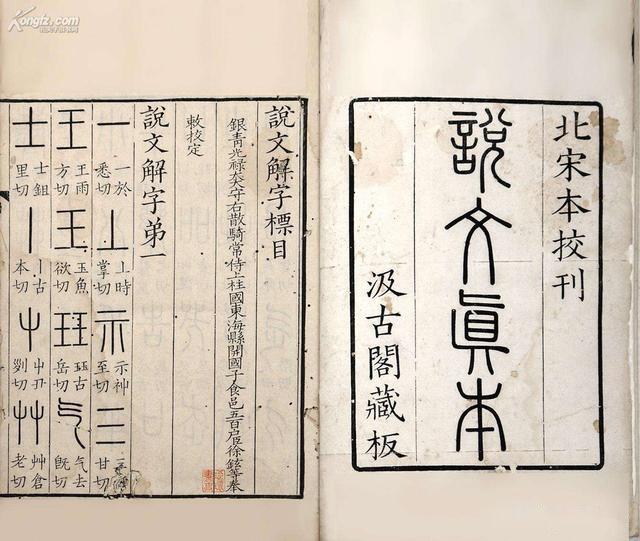 北宋本挍刊
說文真本
汲古閣藏板
說文解字標目
銀青光祿大夫守右散騎常侍上柱國東海縣開國子食邑五百户臣徐鉉等奉
敕挍定
說文解字第一
一 一於悉切 丄 丄時掌切 示 示神至切 三 甘切
王 王雨方切 玉 玉魚欲切 玨 玨古岳切 气 气去旣切
士 士鉏里切 丨 丨古本切 屮 屮丑列切 艸 艸倉老切
Kongfz.com